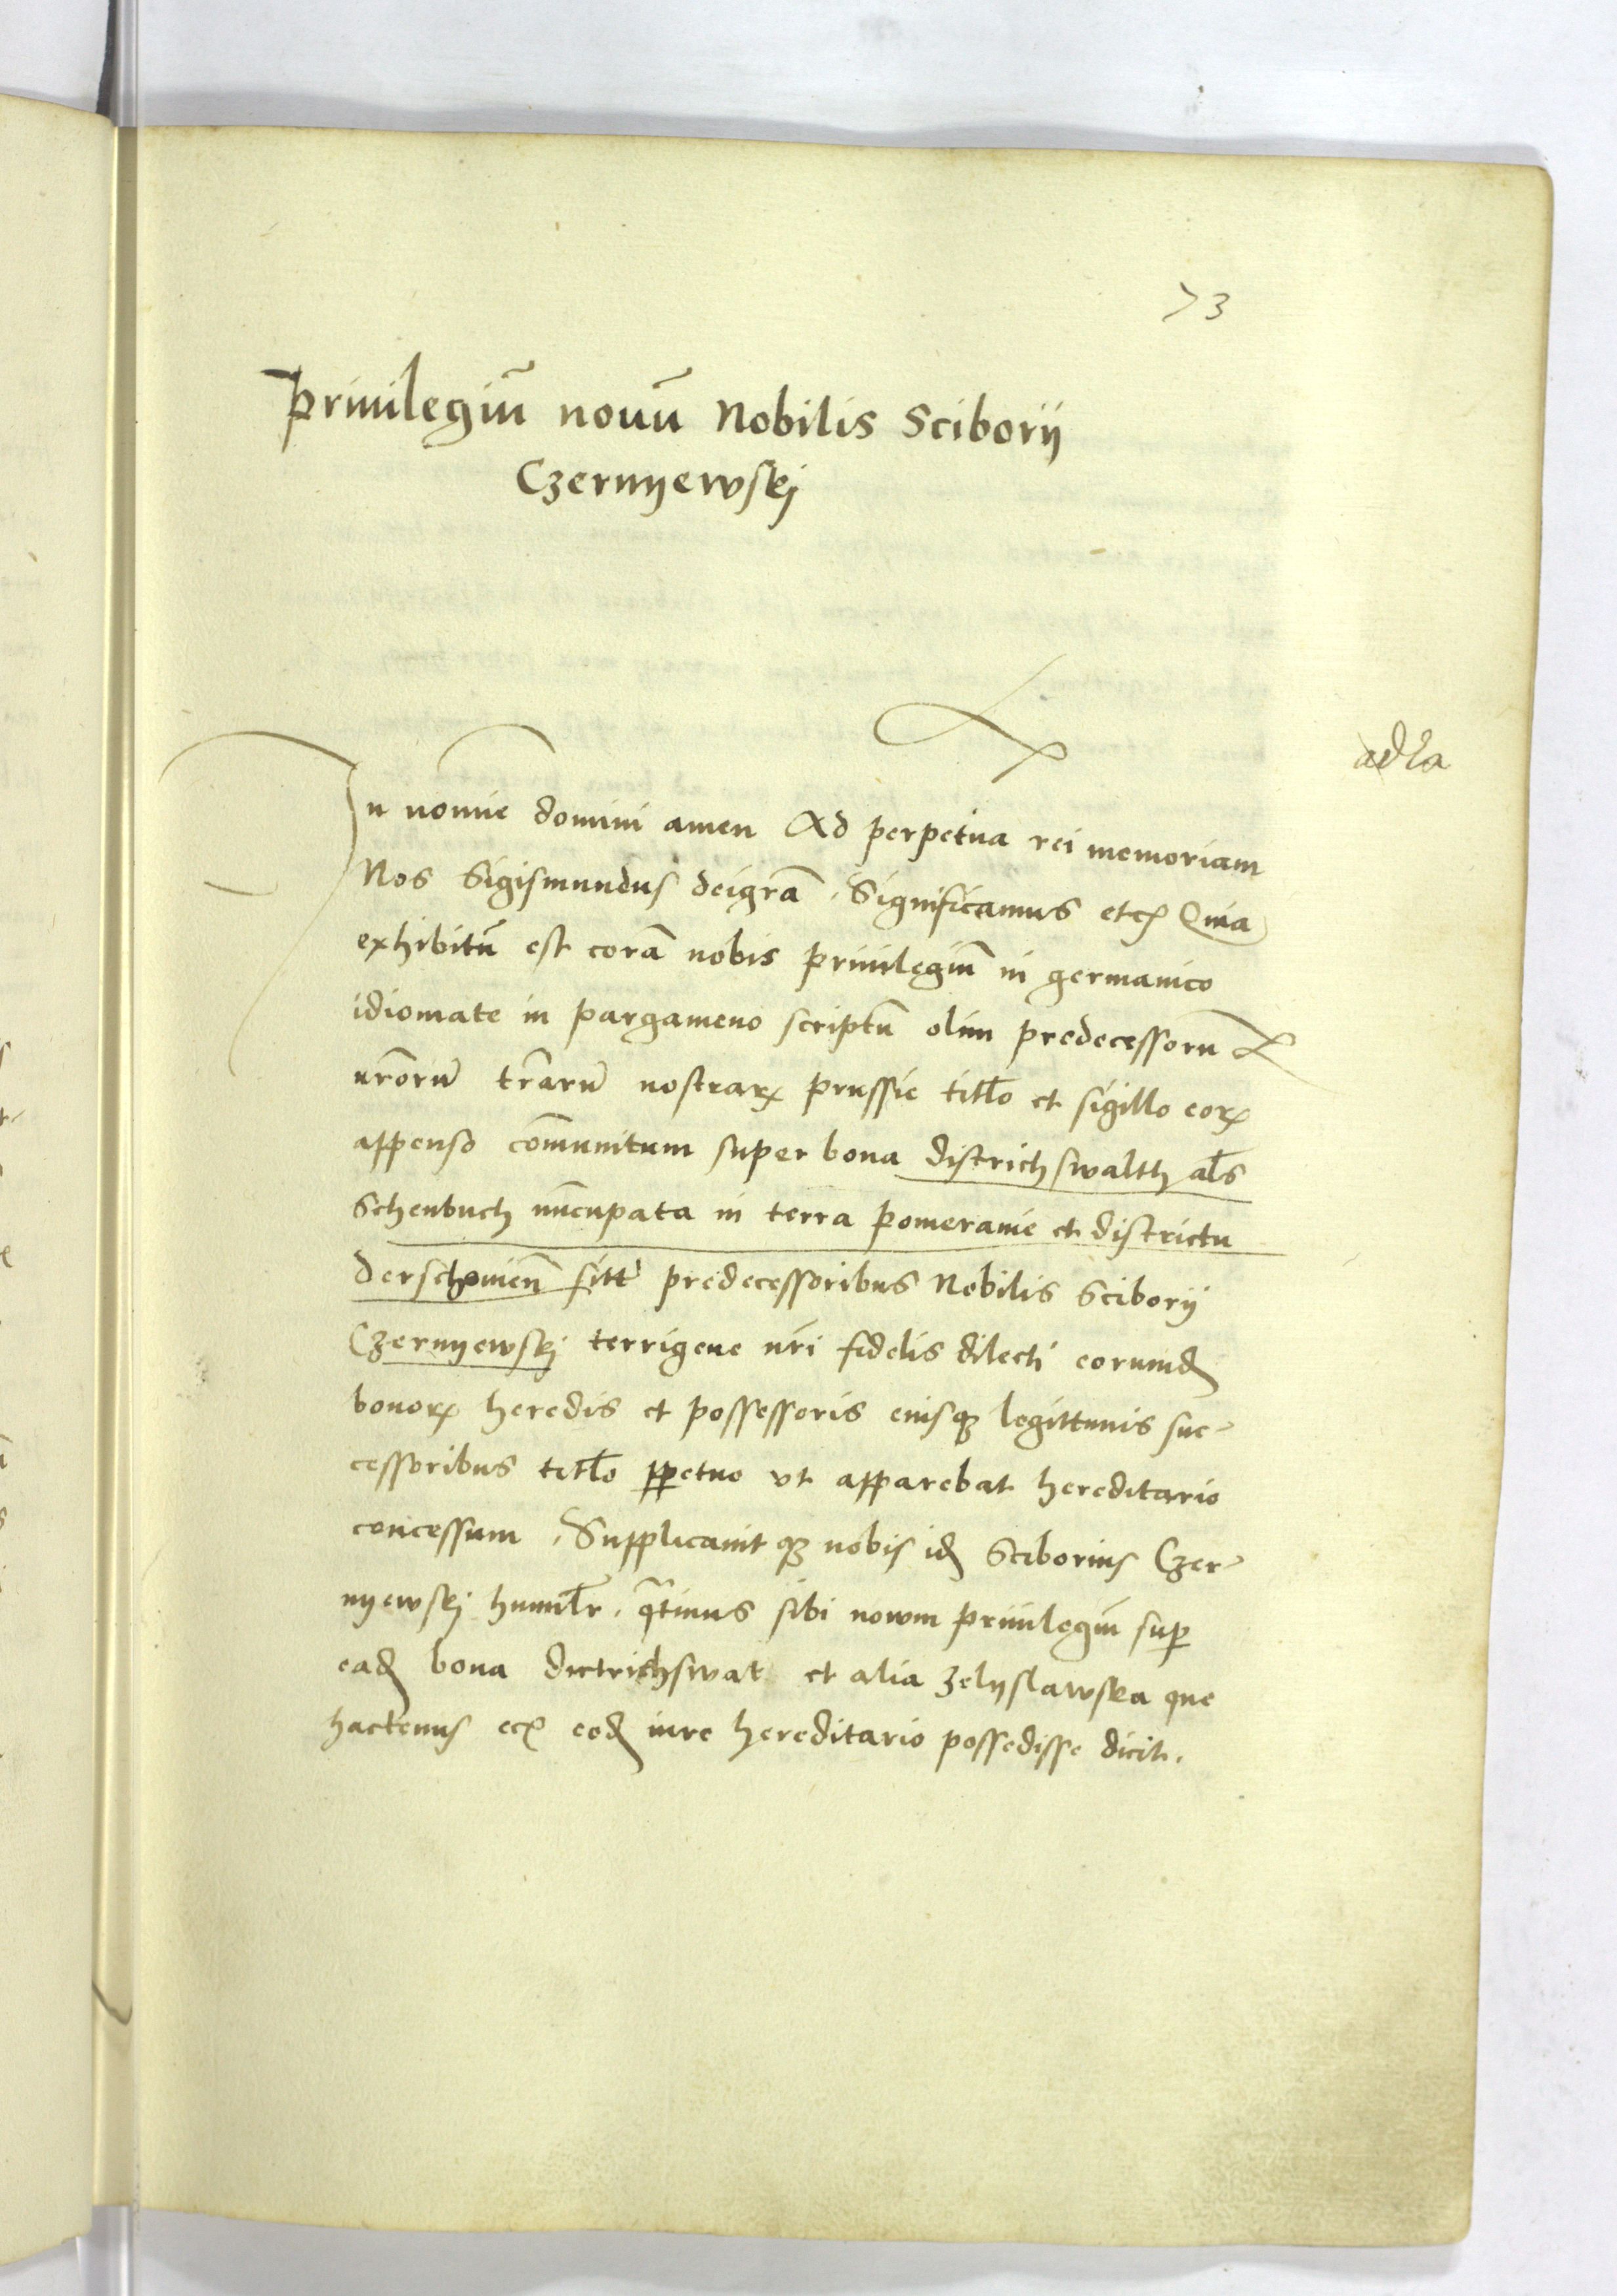 73
Priuilegiū nouū Nobilis Sciborij
Czernyewskj
In nomīe domini amen Ad perpetua rei memoriam
Nos Sigismundus deigrā . Significamus etcꝫ Quia
exhibitū est corā nobis priuilegiū in germanico
idiomate in pargameno scriptū olim predecessorū
nr̄orū tr̄arū nostraꝝ prussie titl̄o et sigillo eoꝝ
appenso cōmunitum super bona districhswaltħ al̄s
Schenbuch nūcupata in terra pomeranie et districtu
derschouień sitt predecessoribus Nobilis Sciborij
Czernyewskj terrigene nr̄i fidelis dilecti eorumd̄
bonoꝝ heredis et possessoris eiusqꝫ legittimis suc-
cessoribus titl̄o ꝑpetuo vt apparebat hereditario
concessum . Supplicauitqꝫ nobis id̄ Sciborius Czer-
nyewskj humil̄r . q̄tinus sibi nowm priuilegiū suꝑ
ead̄ bona dictrichswat et alia zelyslawska que
hactenus ecꝫ eod̄ iure hereditario possedisse dicit .